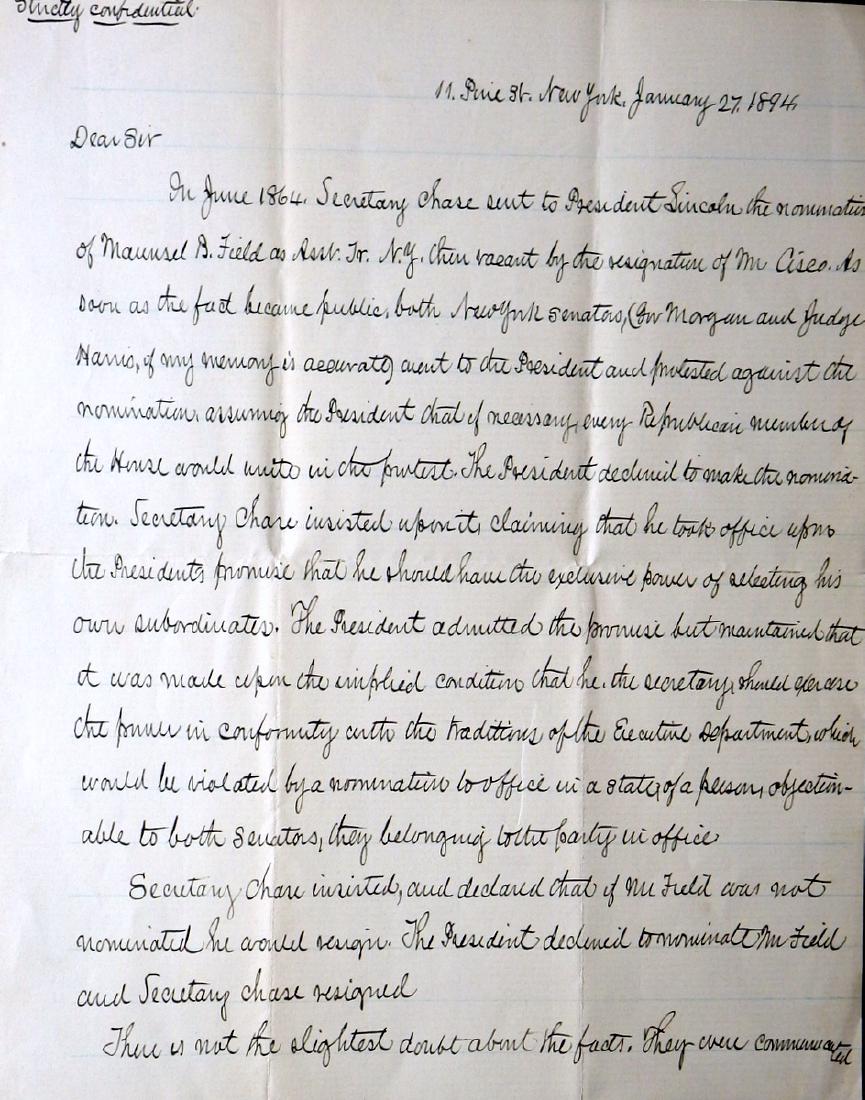 Strictly confidential.
11. Pine St. New York. January 27. 1894.
Dear Sir
In June 1864. Secretary Chase sent to President Lincoln the nomination
of Maunsel B. Field as Asst. Tr. N.Y. then vacant by the resignation of Mr Cisco. As
soon as the fact became public, both New York Senators, (Gov Morgan and Judge
Harris, if my memory is accurate) went to the President and protested against the
nomination, assuring the President that if necessary, every Republican member of
the House would unite in the protest. The President declined to make the nomina-
tion. Secretary Chase insisted upon it, claiming that he took office upon
the Presidents promise that he should have the exclusive power of selecting his
own subordinates. The President admitted the promise but maintained that
it was made upon the implied condition that he, the secretary, should exercise
the power in conformity with the traditions of the Executive Department, which
would be violated by a nomination to office in a state, of a person, objection-
able to both Senators, they belonging to the party in office
Secretary Chase insisted, and declared that if Mr Field was not
nominated he would resign. The President declined to nominate Mr Field
and Secretary Chase resigned
There is not the slightest doubt about the facts. They were communicated